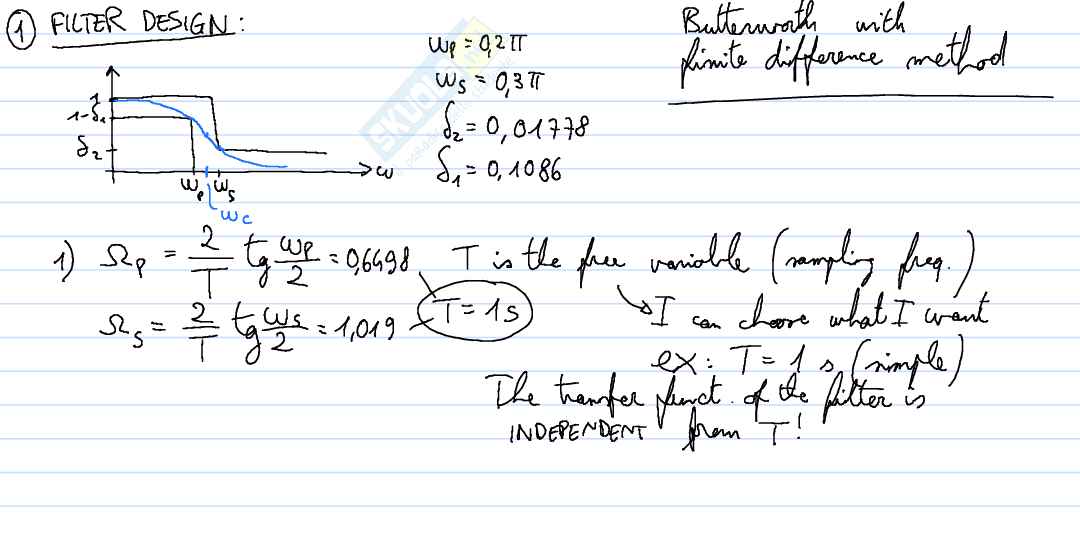 ① FILTER DESIGN:
Butterworth with
finite difference method
ωp = 0,2π
ωs = 0,3π
δ2 = 0,01778
δ1 = 0,1086
1
1-δ1
δ2
ωp ωs
ω
ωc
1) Ωp = 2/T tg ωp/2 = 0,6498
T is the free variable (sampling freq.)
Ωs = 2/T tg ωs/2 = 1,019
T = 1s
I can choose what I want
ex: T = 1 s (simple)
The transfer funct. of the filter is
INDEPENDENT from T!